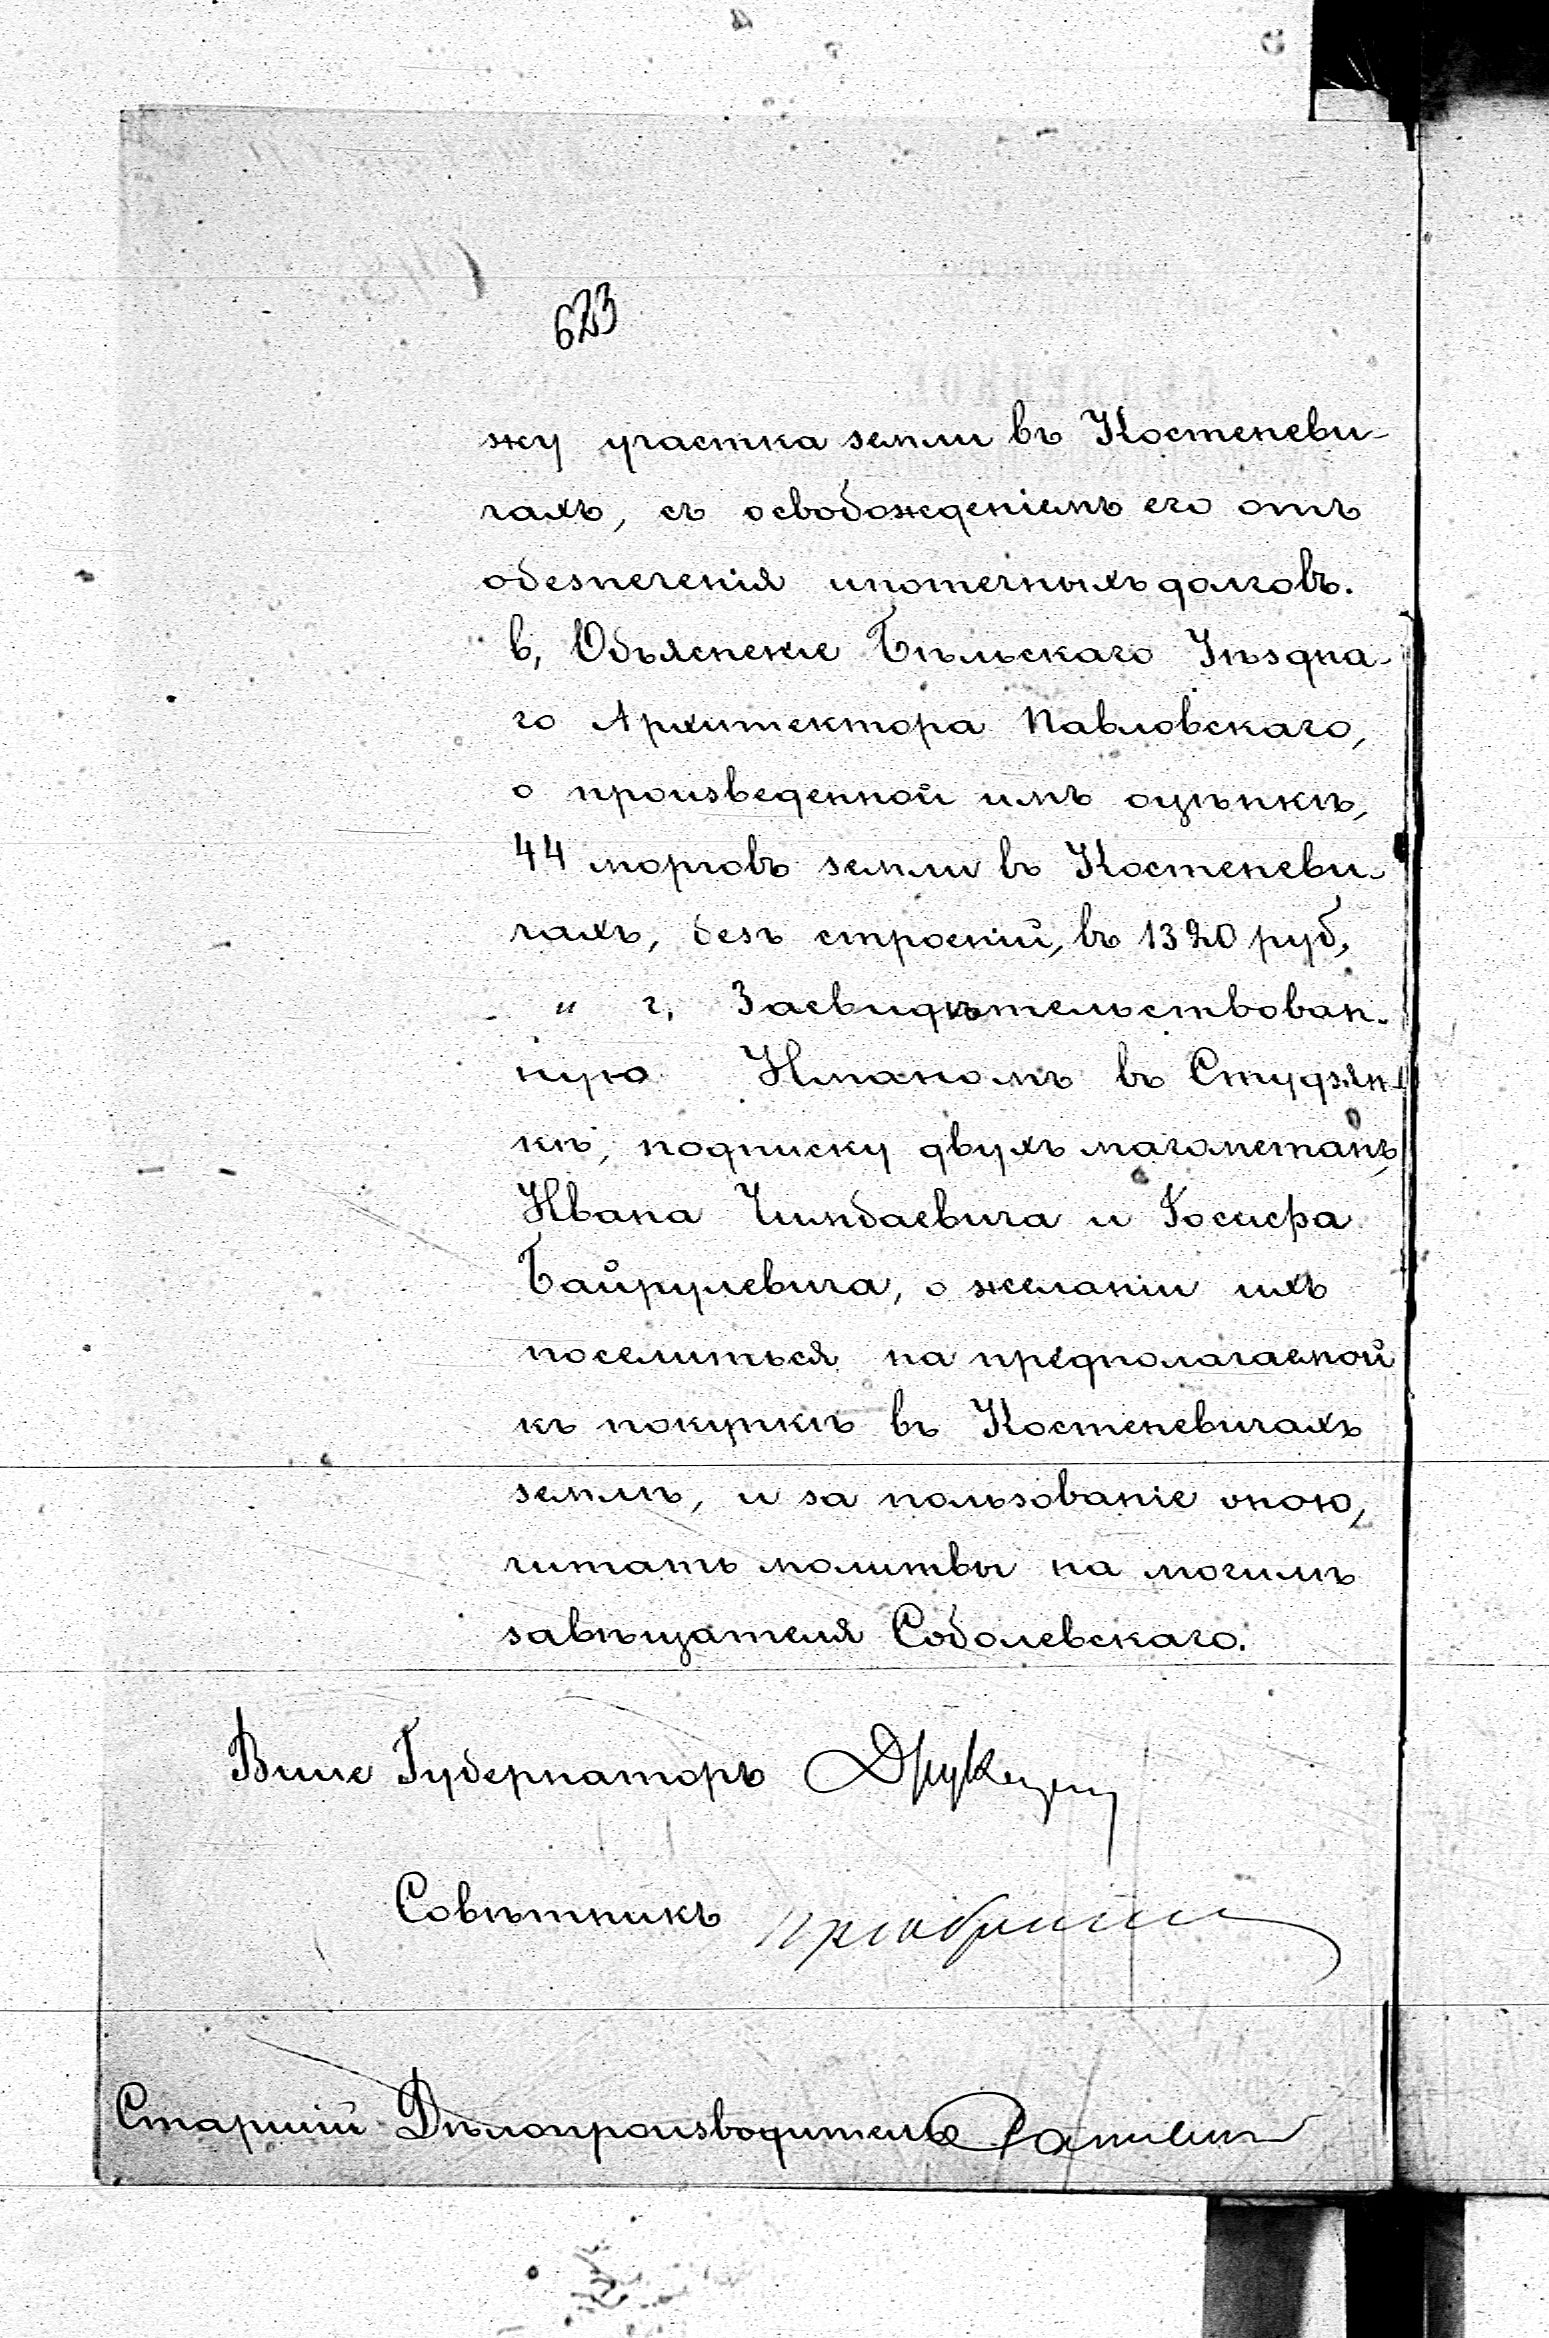 623
жу участка земли въ Костеневи-
чахъ, съ освобожденіемъ его отъ
обезпеченія ипотечныхъ долговъ.
в, Объясненіе Бѣльскаго Уѣздна-
го Архитектора Павловскаго,
о произведенной имъ оцѣнкѣ,
44 морговъ земли въ Костеневи-
чахъ, безъ строеній, въ 1320 руб,
и г, Засвидѣтельствован-
ную Имамомъ въ Студзян-
кѣ, подписку двухъ магометанъ,
Ивана Чимбаевича и Іосифа
Байрулевича, о желаніи ихъ
поселиться на предполагаемой
къ покупкѣ въ Костеневичахъ
землѣ, и за пользованіе оною,
читать молитвы на могилѣ
завѣщателя Соболевскаго.
Вице Губернаторъ
Совѣтникъ
Старшій Дѣлопроизводитель